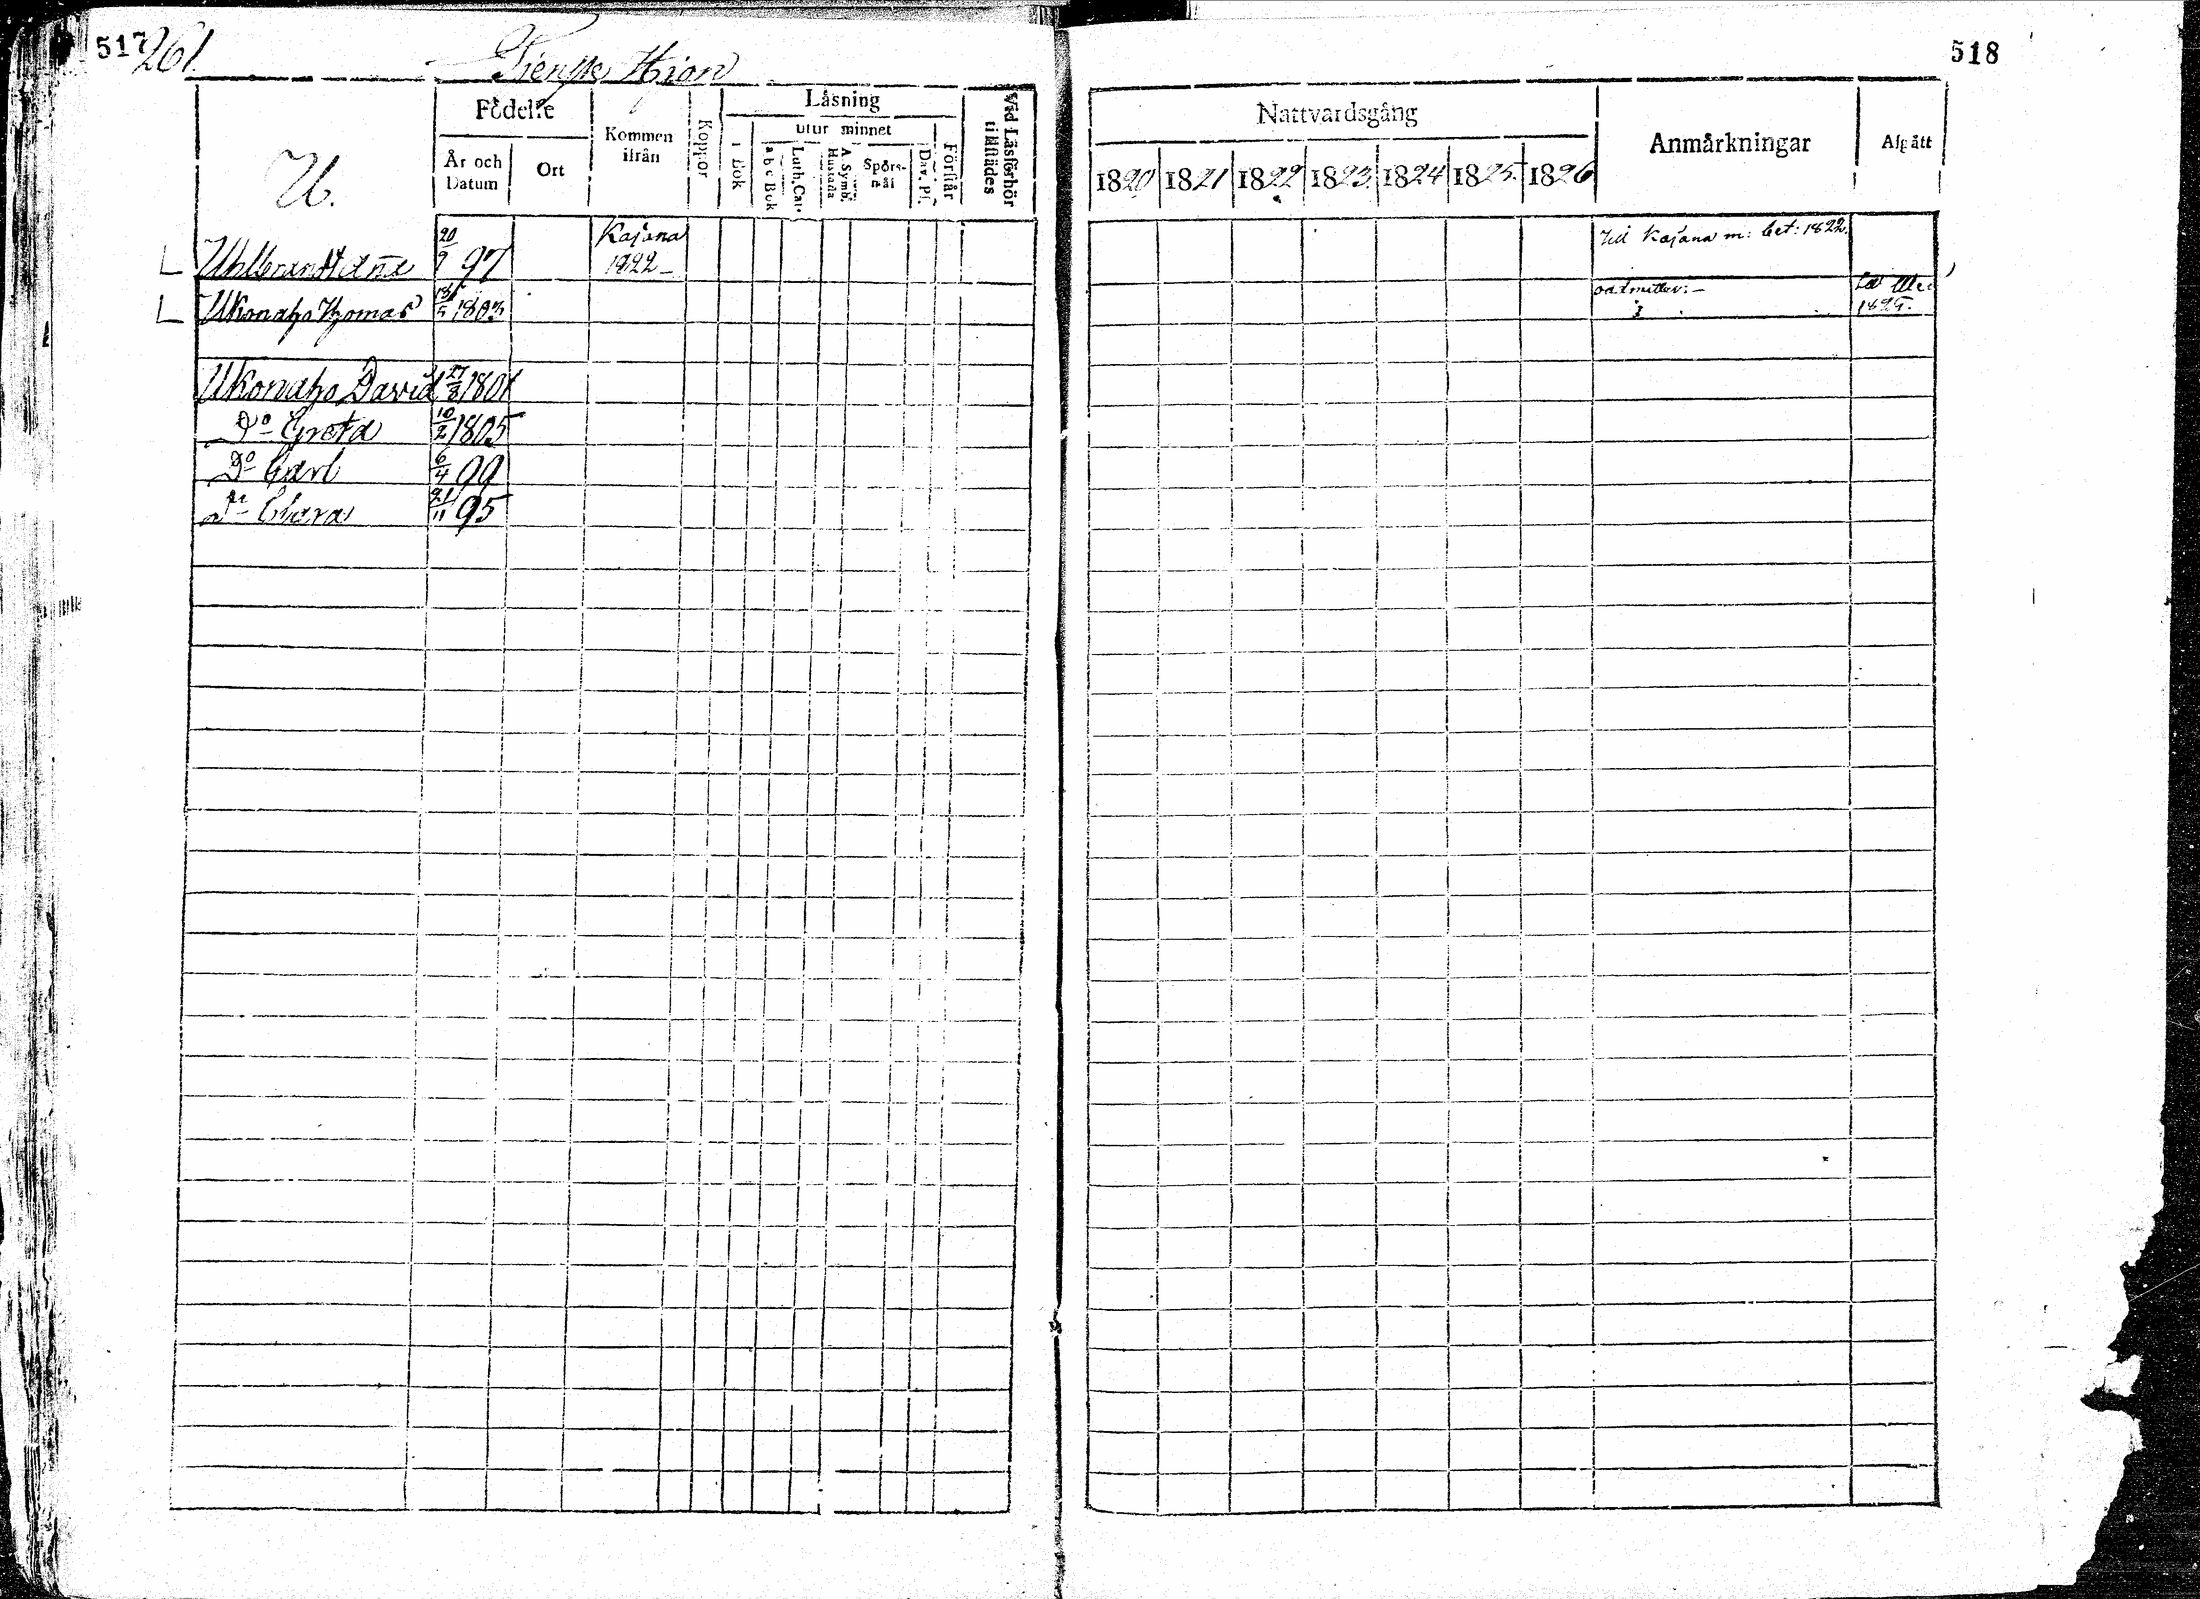 517 261.
518
Tienste Hion
U.
Födelse
År och Datum
Ort
Kommen ifrån
Koppor
Läsning
i Bok
utur minnet
a b c Bok
Luth. Cat.
A. Symb. Hustafla
Spörsmål
Dav. Ps.
Förstår
Vid Läsförhör tillstädes
Nattvardsgång
1820 1821 1822 1823. 1824 1825. 1826
Anmärkningar
Afgått
Uhlbrandt Ana 20/9 97 Kajana 1822 Till Kajana m: bet: 1822.
Ukonaho Thomas 18/5 1803 oadmitter: 1825.
Ukonaho David 27/8 1801
Do Greta 10/2 1805
Do Carl 6/4 99
Do Clara 21/11 95